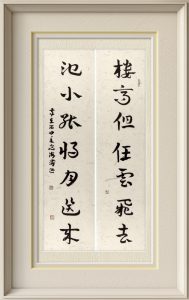 楼高但任雲飛去
池小能将月送来